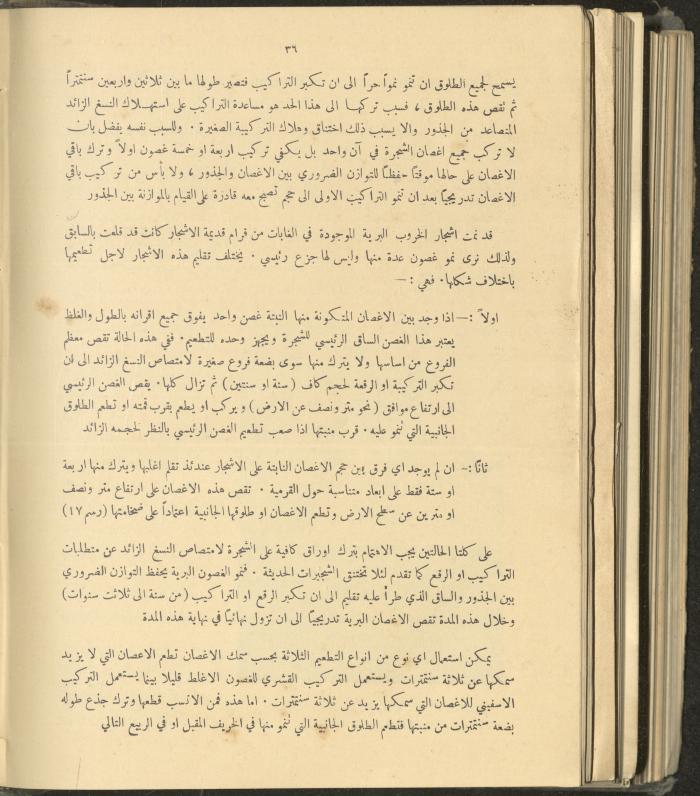 ٣٦
يسمح لجميع الطلوق ان تنمو نمواً حراً الى ان تكبر التراكيب فتصير طولها ما بين ثلاثين واربعين سنتمتراً
ثم تقص هذه الطلوق ، فسبب تركها الى هذا الحد هو مساعدة التراكيب على استهلاك النسغ الزائد
المتصاعد من الجذور والا يسبب ذلك اختناق وهلاك التركيبة الصغيرة . وللسبب نفسه يفضل بان
لا تركب جميع اغصان الشجرة في آن واحد بل يكفي تركيب اربعة او خمسة غصون اولاً وترك باقي
الاغصان على حالها موقتاً حفظاً للتوازن الضروري بين الاغصان والجذور ، ولا بأس من تركيب باقي
الاغصان تدريجياً بعد ان تنمو التراكيب الاولى الى حجم تصبح معه قادرة على القيام بالموازنة بين الجذور
قد نمت اشجار الخروب البرية الموجودة في الغابات من قرام قديمة الاشجار كانت قد قلعت بالسابق
ولذلك نرى نمو غصون عدة منها وليس لها جزع رئيسي . يختلف تقليم هذه الاشجار لاجل تطعيمها
باختلاف شكلها . فهي : —
اولاً : — اذا وجد بين الاغصان المتكونة منها النبتة غصن واحد يفوق جميع اقرانه بالطول والغلظ
يعتبر هذا الغصن الساق الرئيسي للشجرة ويجهز وحده للتطعيم . ففي هذه الحالة تقص معظم
الفروع من اساسها ولا يترك منها سوى بضعة فروع صغيرة لامتصاص النسغ الزائد الى ان
تكبر التركيبة او الرقعة لحجم كاف ( سنة او سنتين ) ثم تزال كلها . يقص الغصن الرئيسي
الى ارتفاع موافق ( نحو متر ونصف عن الارض ) ويركب او يطعم بقرب قمته او تطعم الطلوق
الجانبية التي تنمو عليه . قرب منبتها اذا صعب تطعيم الغصن الرئيسي بالنظر لحجمه الزائد
ثانيًا : - ان لم يوجد اي فرق بين حجم الاغصان النابتة على الاشجار عندئذ تقلم اغلبها ويترك منها اربعة
او ستة فقط على ابعاد متناسبة حول القرمية . تقص هذه الاغصان على ارتفاع متر ونصف
او مترين عن سطح الارض وتطعم الاغصان او طلوقها الجانبية اعتماداً على ضخامتها ( رسم ١٧ )
على كلتا الحالتين يجب الاهتمام بترك اوراق كافية على الشجرة لامتصاص النسغ الزائد عن متطلبات
التراكيب او الرقع كما تقدم لئلا تختنق الشجيرات الحديثة . فنمو الغصون البرية يحفظ التوازن الضروري
بين الجذور والساق الذي طرأ عليه تقليم الى ان تكبر الرقع او التراكيب ( من سنة الى ثلاثت سنوات )
وخلال هذه المدة تقص الاغصان البرية تدريجيًا الى ان تزول نهائيًا في نهاية هذه المدة
يمكن استعمال اي نوع من انواع التطعيم الثلاثة بحسب سمك الاغصان تطعم الاغصان التي لا يزيد
سمكها عن ثلاثة سنتمترات ويستعمل التركيب القشري للغصون الاغلظ قليلا بينما يستعمل التركيب
الاسفيني للاغصان التي سمكها يزيد عن ثلاثة سنتمترات . اما هذه فمن الانسب قطعها وترك جذع طوله
بضعة سنتمترات من منبتها فتطعم الطلوق الجانبية التي تنمو منها في الخريف المقبل او في الربيع التالي